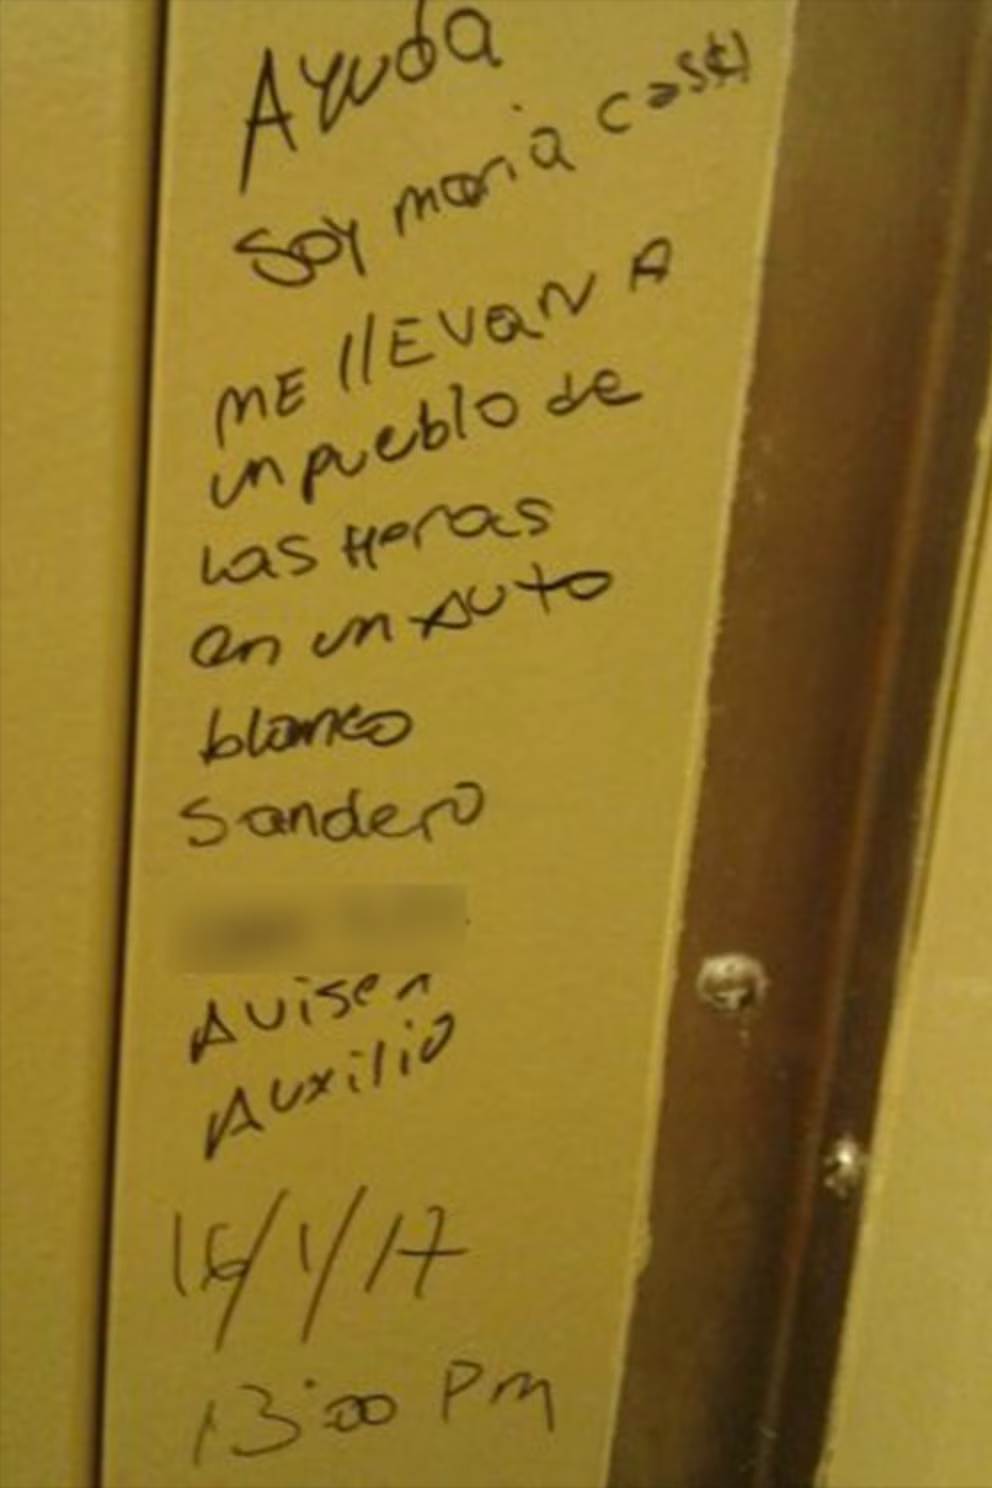 Ayuda
Soy maria cassti
ME llEVaN A
un pueblo de
Las Heras
en un Auto
blanco
Sandero
Avisen
Auxilio
16/1/17
13:00 Pm